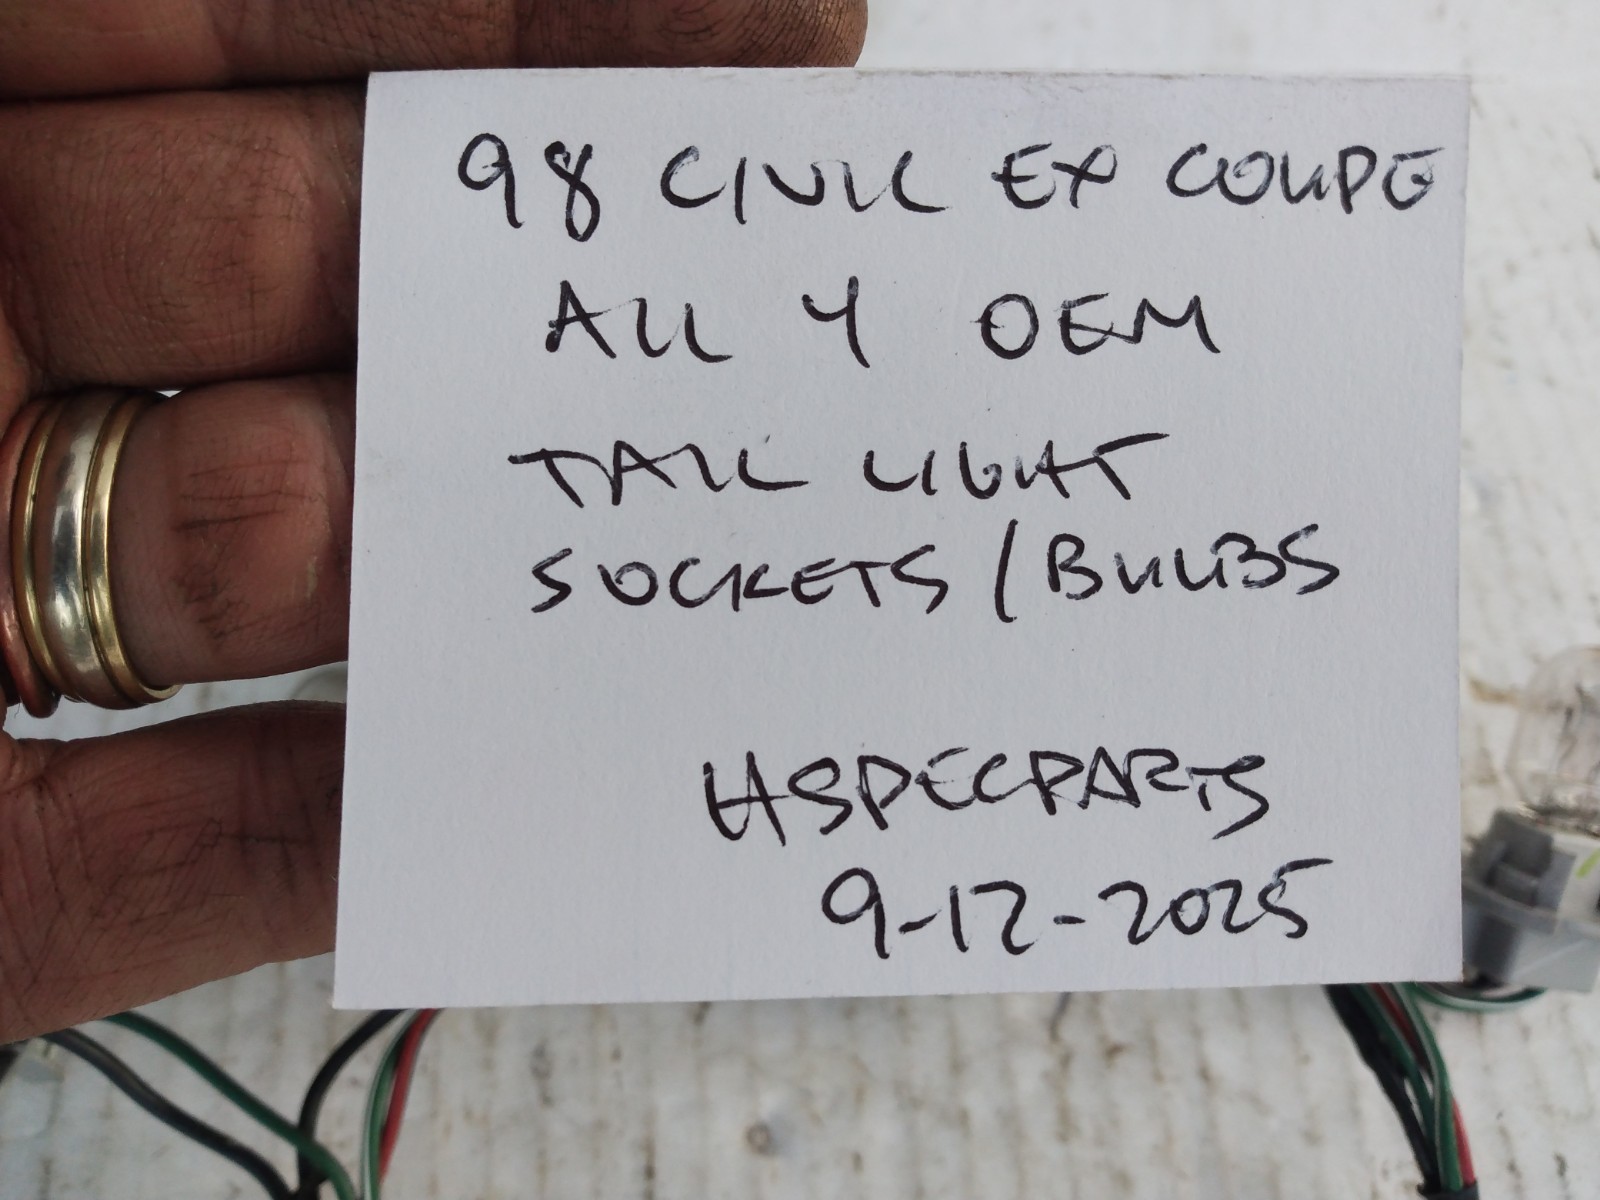 98 CIVIC EX COUPE
ALL 4 OEM
TAIL LIGHT
SOCKETS/BULBS
HSPECPARTS
9-12-2025